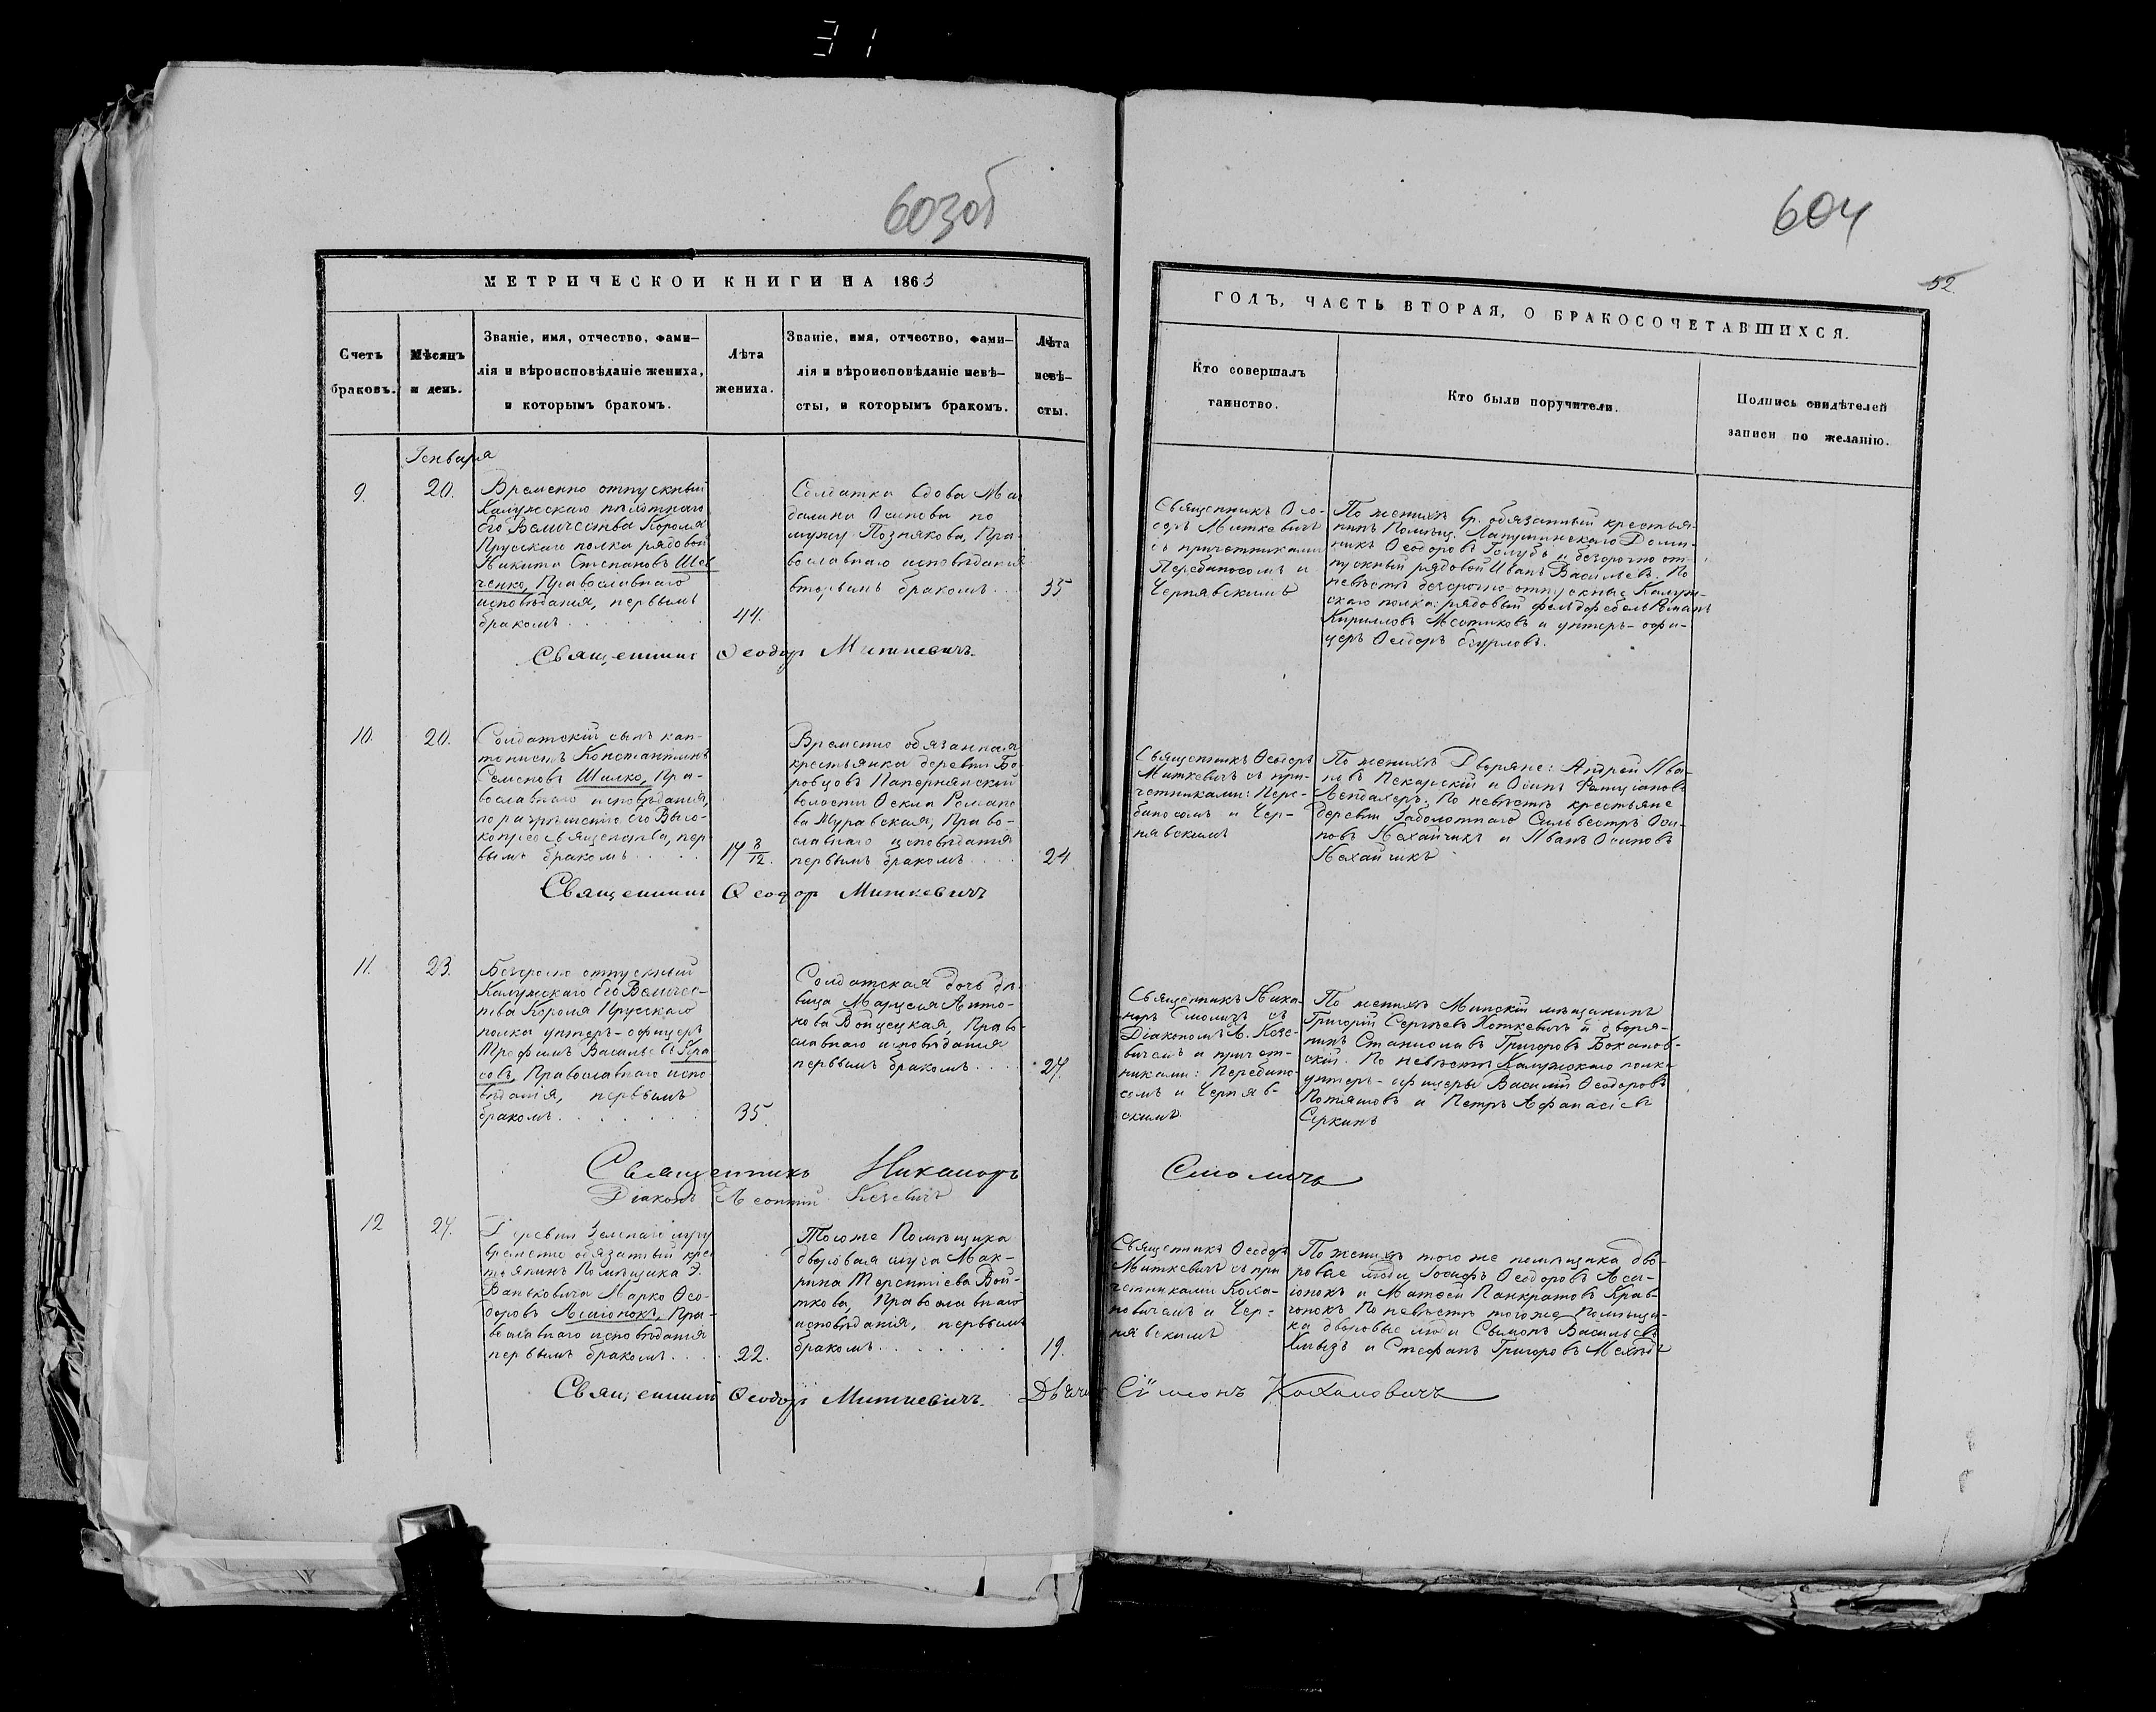 31
603об
604
52.
МЕТРИЧЕСКОЙ КНИГИ НА 1863
ГОДЪ, ЧАСТЬ ВТОРАЯ, О БРАКОСОЧЕТАВШИХСЯ.
Счетъ
браковъ.
Мѣсяцъ
и день.
Званіе, имя, отчество, фами-
лія и вѣроисповѣданіе жениха,
и которымъ бракомъ.
Лѣта
жениха.
Званіе, имя, отчество, фами-
лія и вѣроисповѣданіе невѣ-
сты, и которымъ бракомъ.
Лѣта
невѣ-
сты.
Кто совершалъ
таинство.
Кто были поручители.
Подпись свидѣтелей
записи по желанію.
Генваря
9.
20.
Временно отпускный
Калужскаго пѣхотнаго
Его Величества Короля
Прусскаго полка рядовой
Никита Степановъ Шев
ченко, Православнаго
исповѣданія, первымъ
бракомъ
44.
Солдатка вдова Маг
далина Осипова по
мужу Познякова, Пра-
вославнаго исповѣданія
вторымъ бракомъ
35
Священникъ Ѳео-
доръ Миткевичъ
съ причетниками
Перебиносомъ и
Чернявскимъ
По женихѣ вр. обязанный крестья-
нинъ Помѣщ. Лапушинскаго Доми-
никъ Ѳеодоровъ Голубъ и безсрочно от-
пускный рядовой Иванъ Васильевъ. По
невѣстѣ безсрочно отпускные Калуж-
скаго полка: рядовый фельдфебель Романъ
Кирилловъ Мѣтиковъ и унтеръ-офи-
церъ Ѳеодоръ
Священникъ Ѳеодоръ Миткевичъ.
10.
20.
Солдатскій сынъ кан-
тонистъ Константинъ
Семеновъ Шилко, Пра-
вославнаго исповѣданія,
по разрѣшенію Его Высо-
копреосвященства, пер
вымъ бракомъ
17 8/12.
Временно обязанная
крестьянка деревни Бо
ровцовъ Папернянской
волости Ѳекла Романо
ва Муравская, Право-
славнаго исповѣданія
первымъ бракомъ
24
Священникъ Ѳеодоръ
Миткевичъ съ при-
четниками: Пере-
биносомъ и Чер-
нявскимъ
По женихѣ Дворяне: Андрей Ива-
новъ Пекарскій и Осипъ
По невѣстѣ крестьяне
деревни Заболотнаго Сильвестръ Оси-
повъ Нехайчикъ и Иванъ Осиповъ
Нехайчикъ
Священникъ Ѳеодоръ Миткевичъ
11.
23.
Безсрочно отпускный
Калужскаго Его Величес-
тва Короля Прусскаго
полка унтеръ-офицеръ
Трофимъ Васильевъ Кура
совъ, Православнаго испо
вѣданія, первымъ
бракомъ
35.
Солдатская дочь дѣ-
вица Марцеля Анто-
нова Войцецкая, Право-
славнаго исповѣданія
первымъ бракомъ
24.
Священникъ Ника-
норъ Смоличъ съ
Діакономъ Л. Кезе-
вичемъ и причет-
никами: Перебино-
сомъ и Черняв-
скимъ
По женихѣ Минскій мѣщанинъ
Григорій Сергѣевъ Хоткевичъ и дворя-
нинъ Станиславъ Григоровъ Бохановъ-
скій. По невѣстѣ Калужскаго полка
унтеръ-офицеры Василій Ѳеодоровъ
и Петръ Афанасіевъ
Серкинъ
Священникъ Никаноръ Смоличъ
Діаконъ Леонтій Кезевичъ
12
27.
Деревни Зеленаго лугу
временно обязанный крес
тьянинъ Помѣщика Э.
Ваньковича Марко Ѳео-
доровъ Асіюнокъ, Пра-
вославнаго исповѣданія
первымъ бракомъ
22.
Тогоже Помѣщика
дворовая слуга Мак-
рина Терентіева Вой-
ткова, Православнаго
исповѣданія, первымъ
бракомъ
19.
Священникъ Ѳеодоръ
Миткевичъ съ при
четниками Коха-
новичемъ и Чер-
нявскимъ
По женихѣ того же помѣщика дво-
ровые люди Іосифъ Ѳеодоровъ Аси-
іонокъ и Матѳей Панкратовъ Крав-
чонокъ По невѣстѣ тогоже Помѣщи-
ка дворовые люди Сѵмонъ Васильевъ
Хмызъ и Стефанъ Григоровъ
Священникъ Ѳеодоръ Миткевичъ. Дьячекъ Сѵмеонъ Кохановичъ